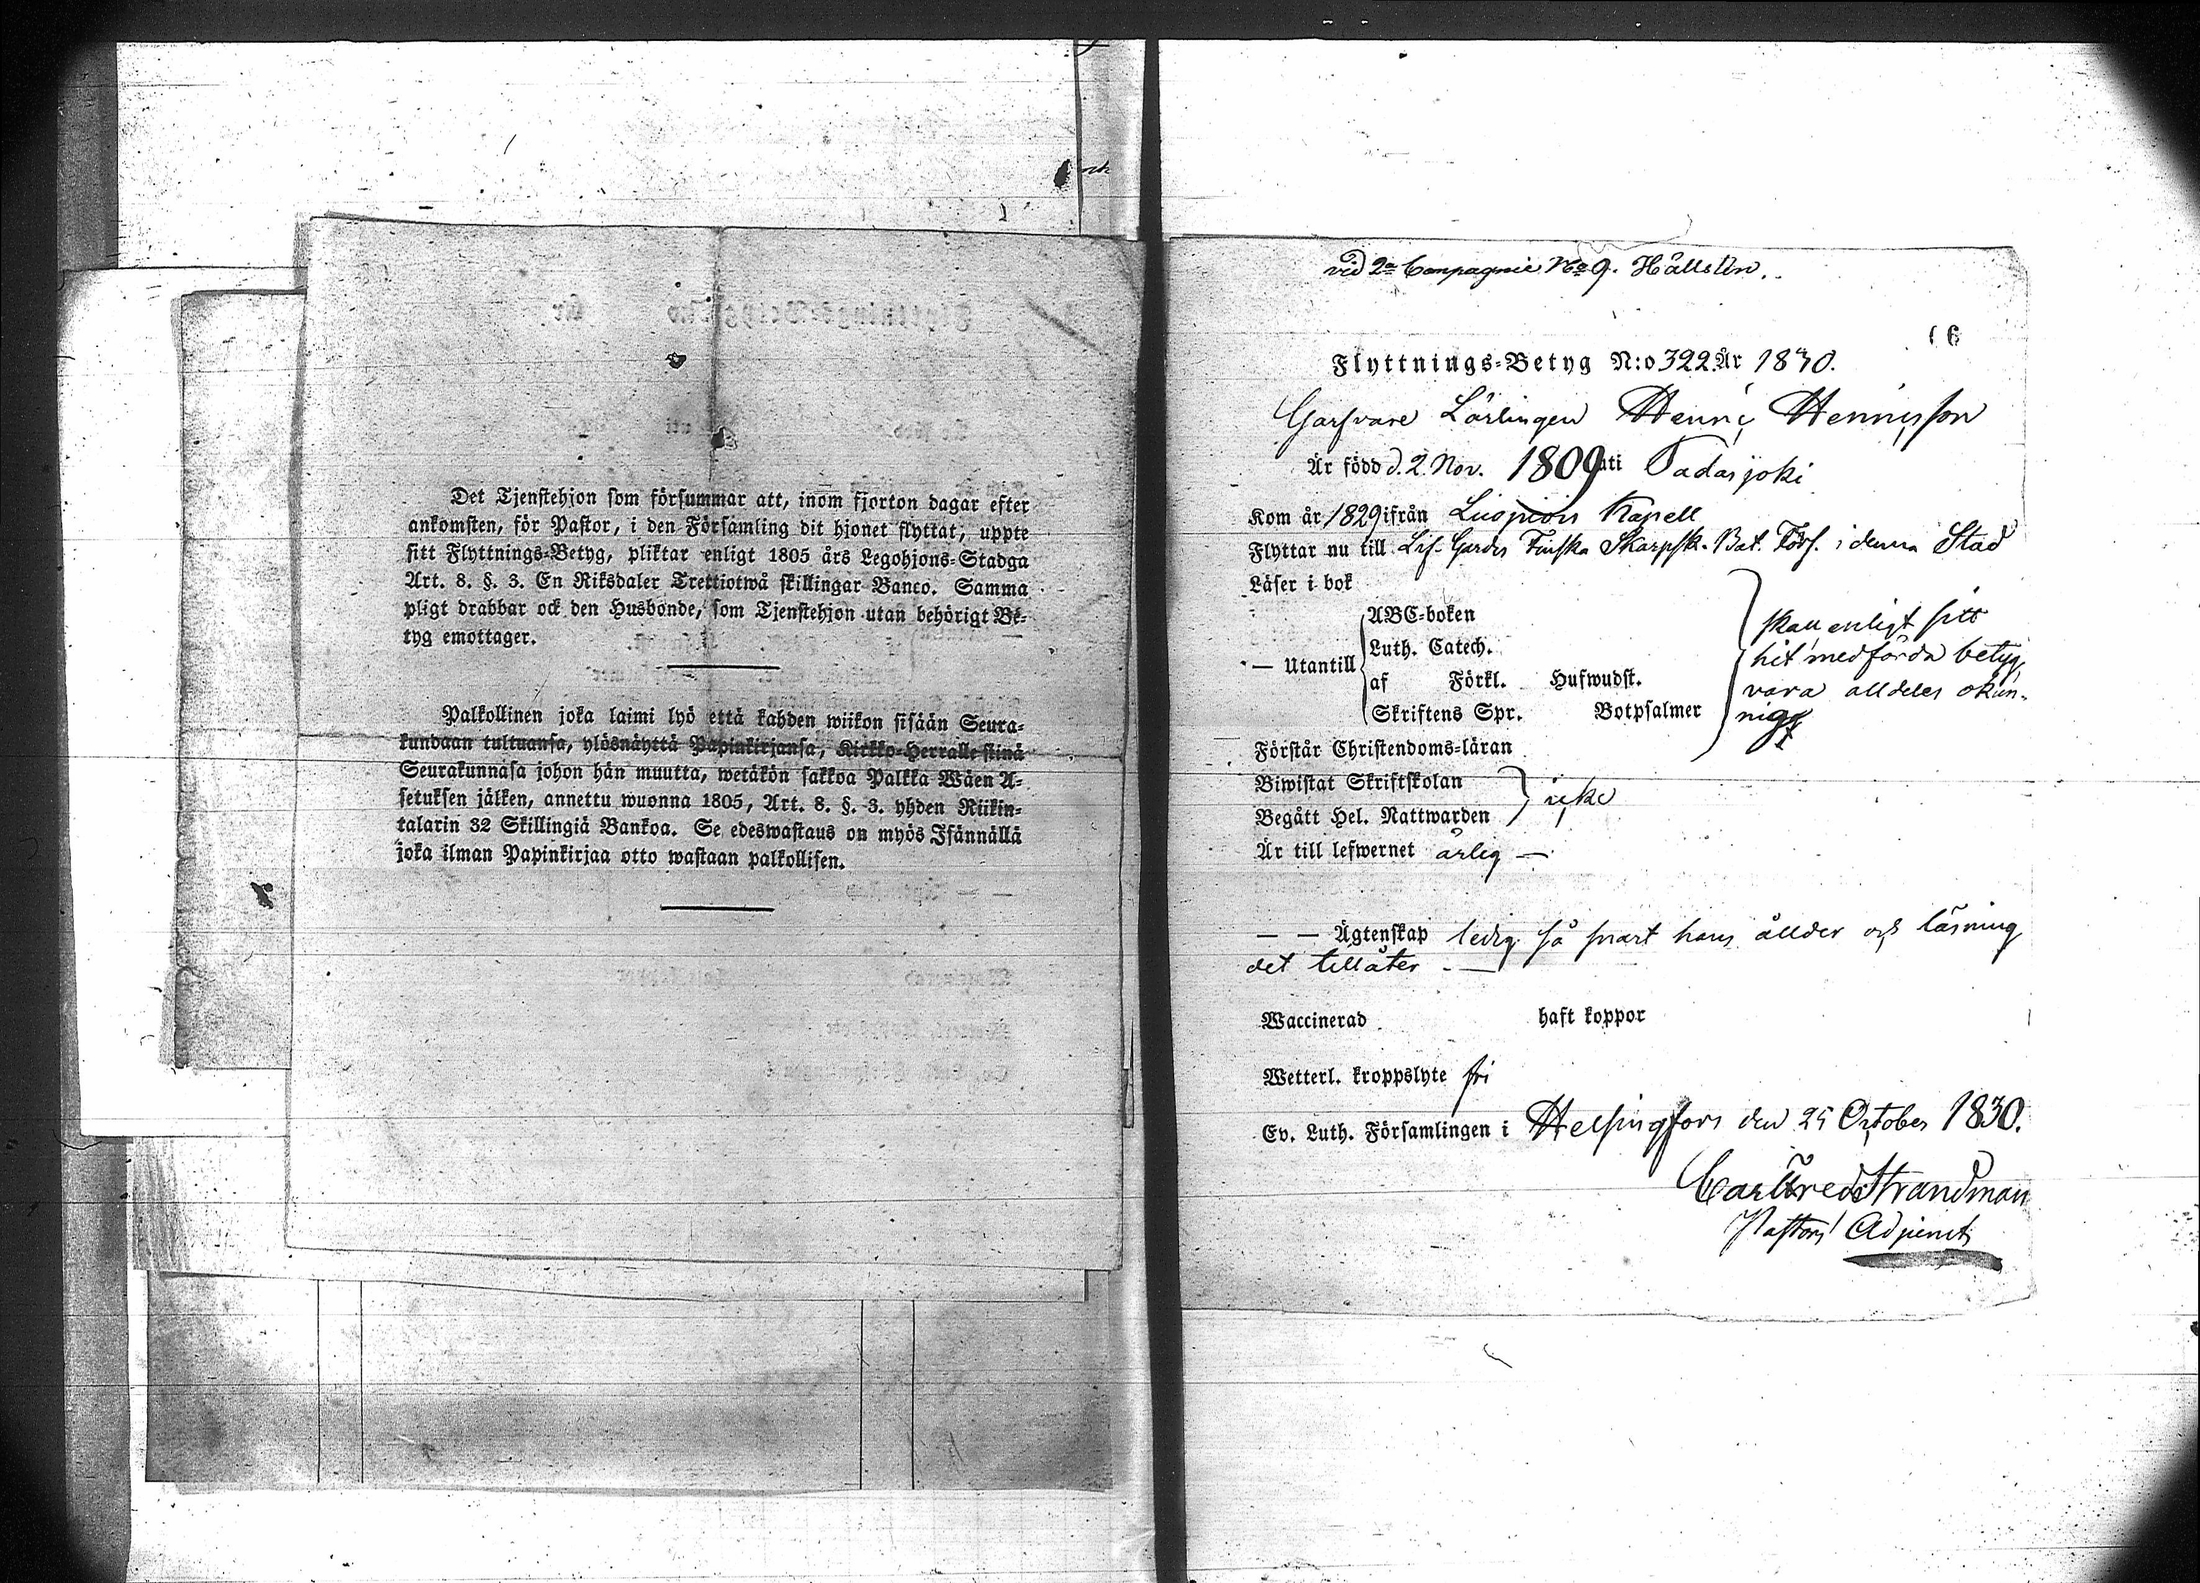 Det Tjenstehjon som försummar att, inom fjorton dagar efter
ankomsten, för Pastor, i den Församling dit hjonet flyttat, uppte
sitt Flyttnings-Betyg, pliktar enligt 1805 års Legohjons-Stadga
Art. 8. §. 3. En Riksdaler Trettiotwå skillingar Banco. Samma
pligt drabbar ock den Husbonde, som Tjenstehjon utan behörigt Be-
tyg emottager.
Palkollinen joka laimi lyö että kahden wiikon sisään Seura-
kundaan tultuansa, ylösnäyttä Papinkirjansa, Kirkko-Herralle siinä
Seurakunnasa johon hän muutta, wetäkön sakkoa Palkka Wäen A-
setuksen jälken, annettu wuonna 1805, Art. 8. §. 3. yhden Riikin-
talarin 32 Skillingiä Bankoa. Se edeswastaus on myös Isännällä
joka ilman Papinkirjaa otto wastaan palkollisen.
vid 2a Compagnie No 9. Hällsten.
66
Flyttnings-Betyg N:o 322 År 1830.
Garfvare Lärlingen Henric Henricsson
Är född d. 2 Nov. 1809 uti Padasjoki
Kom år 1829 ifrån Luopiois Kapell
Flyttar nu till Lif-Gardes Finska Skarpsk. Bat. Förs. i denna Stad
Läser i bok
ABC-boken
Luth. Catech.
— Utantill
af Förkl. Hufwudst.
Skriftens Spr. Botpsalmer
skall enligt sitt
hit medförda betyg
vara alldeles okun-
nig
Förstår Christendoms-läran
Biwistat Skriftskolan
Begått Hel. Nattwarden
icke
Är till lefwernet ärlig —
— — Ägtenskap ledig så snart hans ållder och läsning
det tillåter. —
Waccinerad haft koppor
Wetterl. kroppslyte fri
Ev. Luth. Församlingen i Helsingfors den 25 October 1830.
Carl Fred Strandman
Pastors Adjunct